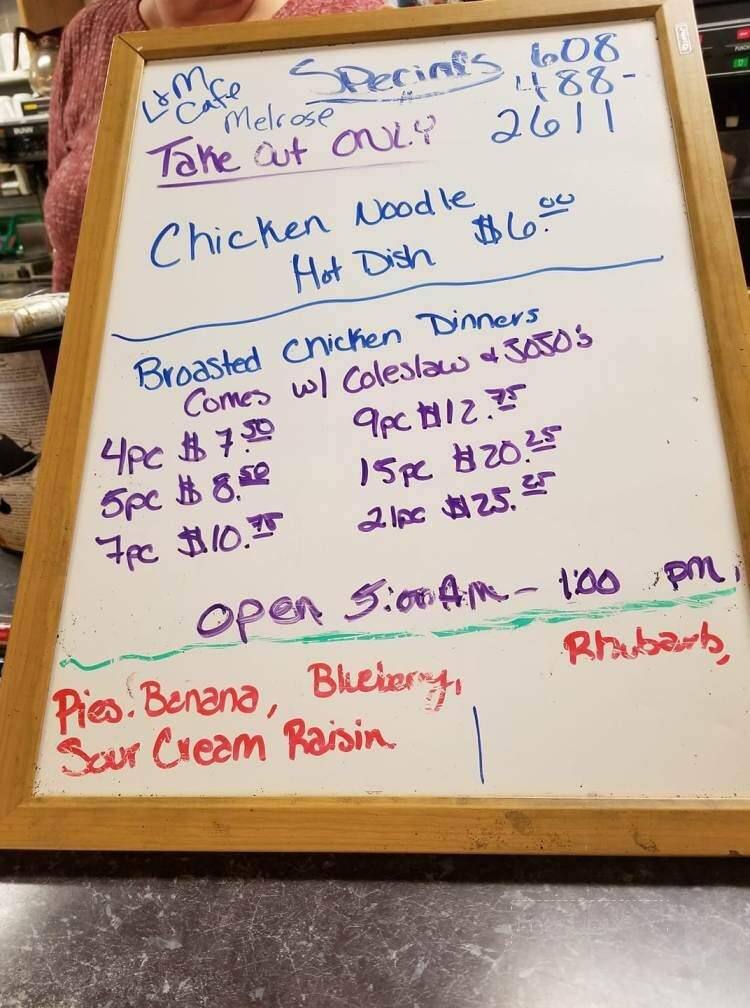 L&M Specials 608
Cafe 488-
Melrose 2611
Take Out ONLY
Chicken Noodle $6.00
Hot Dish
Broasted Chicken Dinners
Comes w/ Coleslaw & JOJO's
4pc $7.50 9pc $12.75
5pc $8.50 15pc $20.25
7pc $10.75 21pc $25.25
Open 5:00AM - 1:00 pm
Pies. Banana, Blueberry, Rhubarb,
Sour Cream Raisin
BUNN